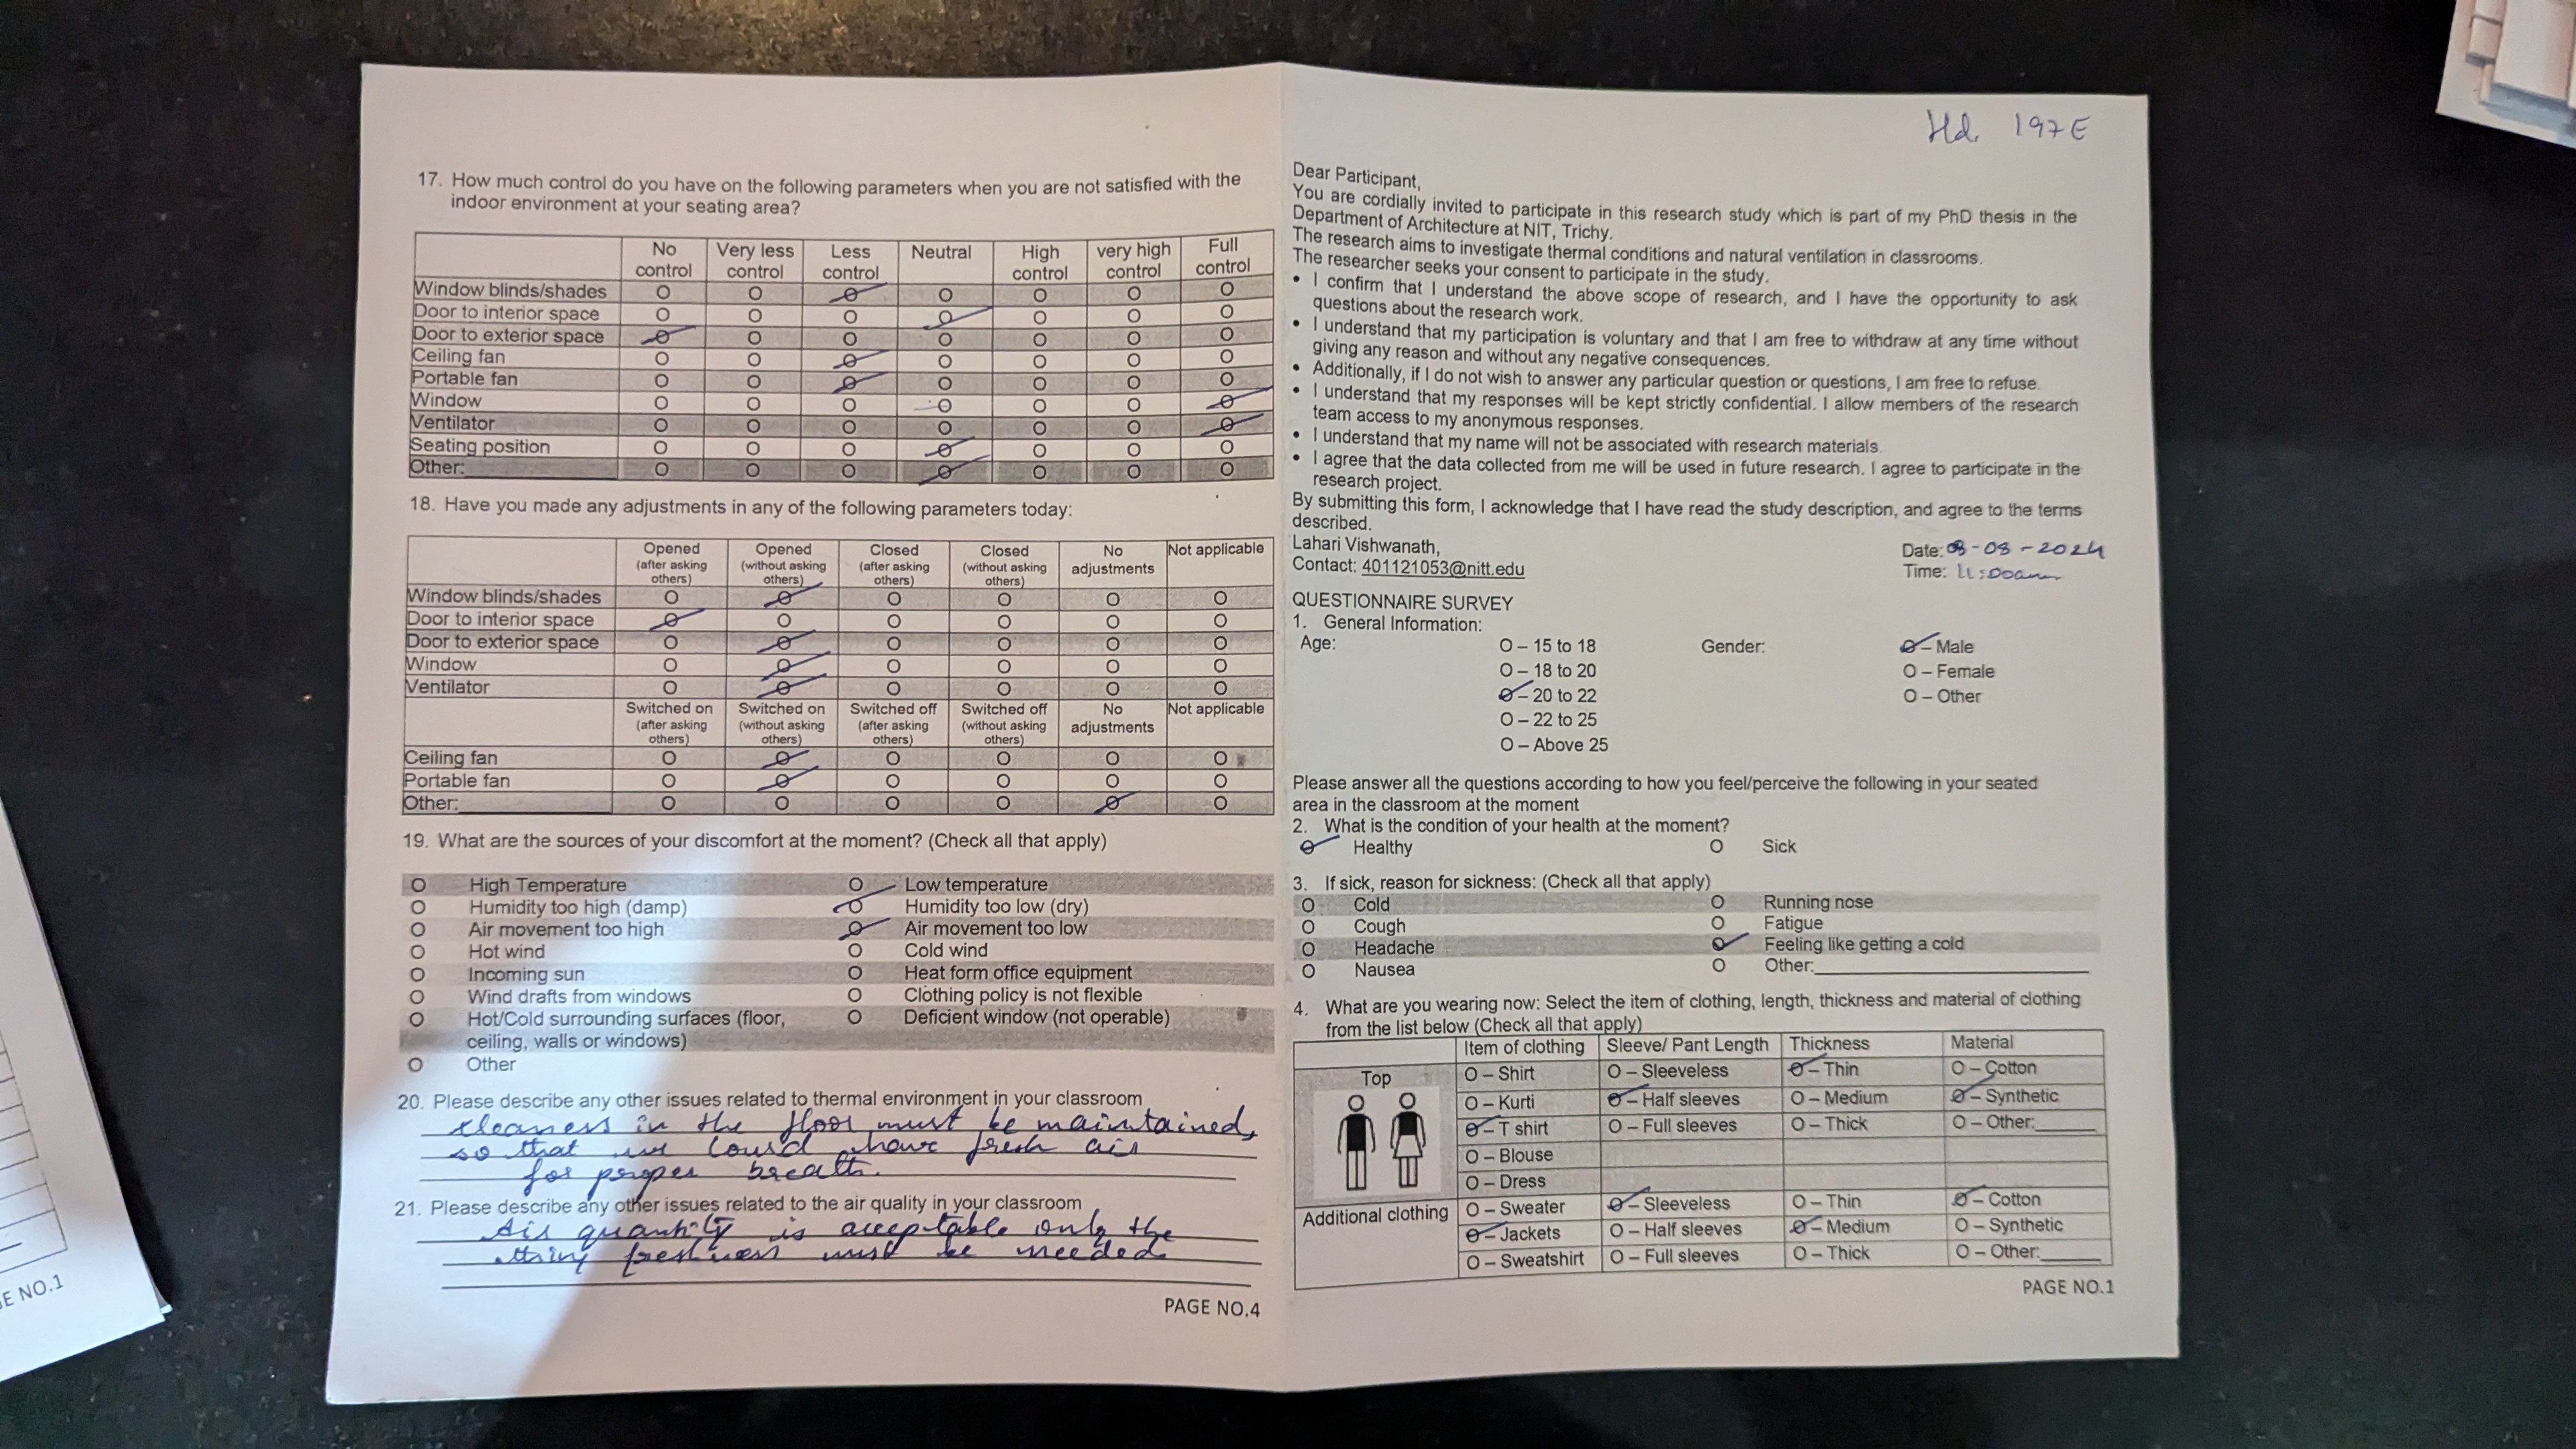 17. How much control do you have on the following parameters when you are not satisfied with the
indoor environment at your seating area?
No control Very less control Less control Neutral High control very high control Full control
Window blinds/shades O O O O O O O
Door to interior space O O O O O O O
Door to exterior space O O O O O O O
Ceiling fan O O O O O O O
Portable fan O O O O O O O
Window O O O O O O O
Ventilator O O O O O O O
Seating position O O O O O O O
Other: O O O O O O O
18. Have you made any adjustments in any of the following parameters today:
Opened (after asking others) Opened (without asking others) Closed (after asking others) Closed (without asking others) No adjustments Not applicable
Window blinds/shades O O O O O O
Door to interior space O O O O O O
Door to exterior space O O O O O O
Window O O O O O O
Ventilator O O O O O O
Switched on (after asking others) Switched on (without asking others) Switched off (after asking others) Switched off (without asking others) No adjustments Not applicable
Ceiling fan O O O O O O
Portable fan O O O O O O
Other: O O O O O O
19. What are the sources of your discomfort at the moment? (Check all that apply)
O High Temperature O Low temperature
O Humidity too high (damp) O Humidity too low (dry)
O Air movement too high O Air movement too low
O Hot wind O Cold wind
O Incoming sun O Heat form office equipment
O Wind drafts from windows O Clothing policy is not flexible
O Hot/Cold surrounding surfaces (floor, O Deficient window (not operable)
ceiling, walls or windows)
O Other
20. Please describe any other issues related to thermal environment in your classroom
cleaness in the floor must be maintained,
so that we have fresh air
for proper breath.
21. Please describe any other issues related to the air quality in your classroom
Air quantity is acceptable only the
thing freshness must be needed
PAGE NO.4
197E
Dear Participant,
You are cordially invited to participate in this research study which is part of my PhD thesis in the
Department of Architecture at NIT, Trichy.
The research aims to investigate thermal conditions and natural ventilation in classrooms.
The researcher seeks your consent to participate in the study.
• I confirm that I understand the above scope of research, and I have the opportunity to ask
questions about the research work.
• I understand that my participation is voluntary and that I am free to withdraw at any time without
giving any reason and without any negative consequences.
• Additionally, if I do not wish to answer any particular question or questions, I am free to refuse.
• I understand that my responses will be kept strictly confidential. I allow members of the research
team access to my anonymous responses.
• I understand that my name will not be associated with research materials.
• I agree that the data collected from me will be used in future research. I agree to participate in the
research project.
By submitting this form, I acknowledge that I have read the study description, and agree to the terms
described.
Lahari Vishwanath,
Contact: 401121053@nitt.edu
Date: 08-08-2024
Time: 11:00am
QUESTIONNAIRE SURVEY
1. General Information:
Age: O – 15 to 18 Gender: O – Male
O – 18 to 20 O – Female
O – 20 to 22 O – Other
O – 22 to 25
O – Above 25
Please answer all the questions according to how you feel/perceive the following in your seated
area in the classroom at the moment
2. What is the condition of your health at the moment?
O Healthy O Sick
3. If sick, reason for sickness: (Check all that apply)
O Cold O Running nose
O Cough O Fatigue
O Headache O Feeling like getting a cold
O Nausea O Other:
4. What are you wearing now: Select the item of clothing, length, thickness and material of clothing
from the list below (Check all that apply)
Item of clothing Sleeve/ Pant Length Thickness Material
Top O – Shirt O – Sleeveless O – Thin O – Cotton
O – Kurti O – Half sleeves O – Medium O – Synthetic
O – T shirt O – Full sleeves O – Thick O – Other:
O – Blouse
O – Dress
Additional clothing O – Sweater O – Sleeveless O – Thin O – Cotton
O – Jackets O – Half sleeves O – Medium O – Synthetic
O – Sweatshirt O – Full sleeves O – Thick O – Other:
PAGE NO.1
E NO.1